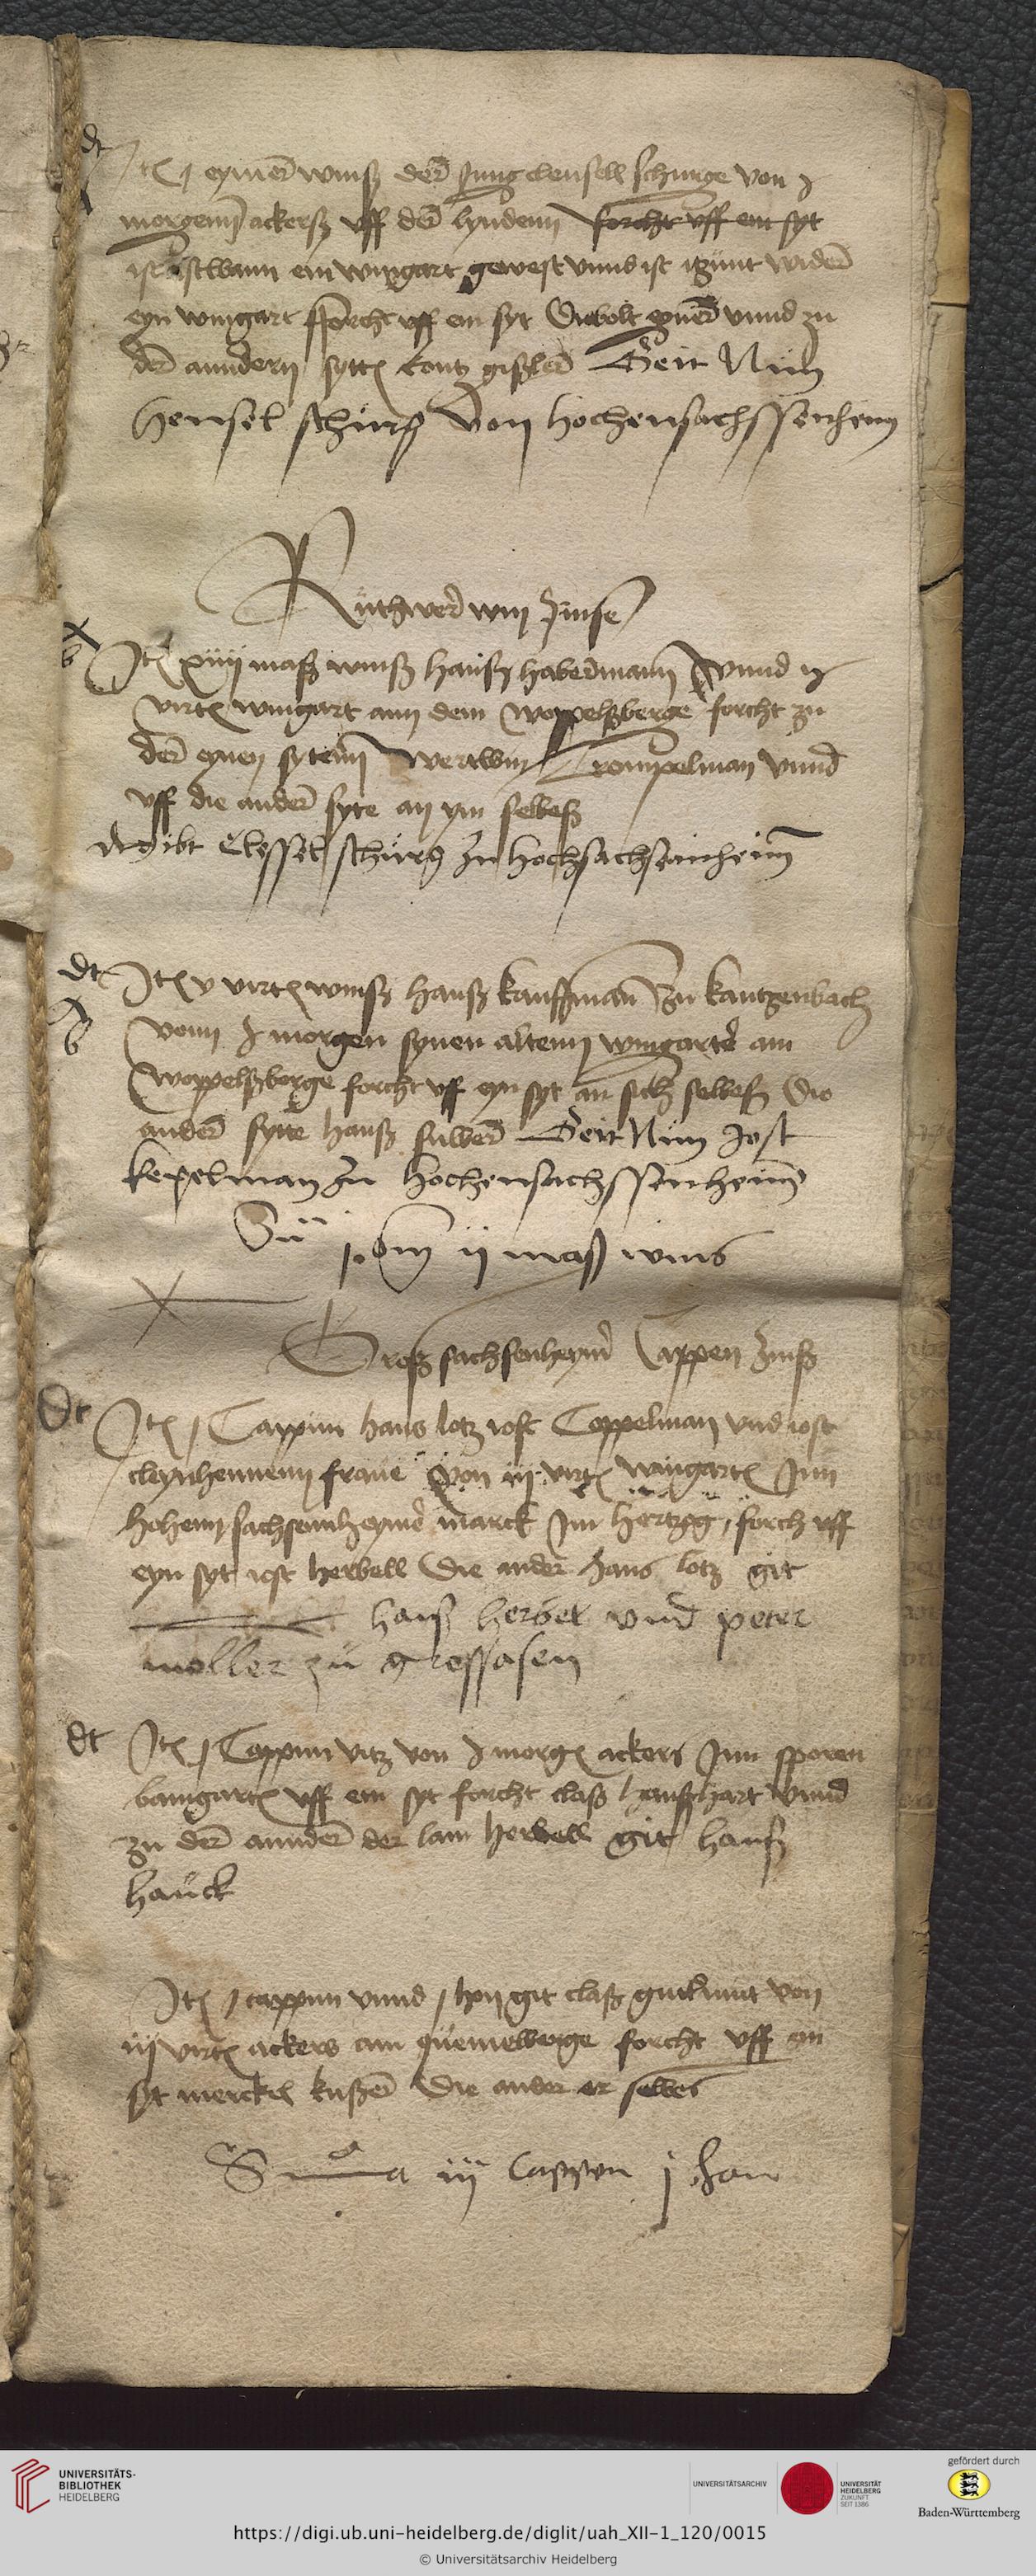 dt
Itē j eymer winß der Jung clensell schurge von j
morgenn ackerß uff der lyndenn forcht uff ein syt
ist etwann ein wingart gewest unnd ist itzunt wider
eyn wingart fforcht uff ein syt Diebolt eyner unnd zu
der anndern sytte contz gißler Geit Nun
Hensel schurg von hochensachssenheim
win zinse
Itē xiiij maß winß Hanß habermann unnd ij
virtē wingart ann dem woppelßberge forcht zu
der eynen sytenn wertwin Trompelman unnd
uff die ander syte an ym selbeß
dt gibt Clessel schurg zu hochsachsenheim
dt
Itē v virtē winß Hanß kauffman zu kantzenbach
vonn j morgen synen altenn wingarte am
woppelßberge forcht uff eyn syt an sich selbeß Die
ander sytte Hanß suber Geit Nun Jost
kepelman zu hochensachssenheim
Su j om ij maß wins
Groß sachsenheymer Cappen zinß
Dt
Itē j Cappun hans lotz jost Coppelman und jost
cleynhennenn fraue von iij virtē wingartē Inn
hohenn sachsennheymer marck Im hertzog forch uff
eyn syt jost herbell Die ander hans lotz git
hanß herbel und peter
moller zu grossasen
dt
Itē j Cappun utz von j morgē ackers Inn sporen
bamgartē uff ein syt forcht claß unnd
zu der annder der lam herbell git hanß
hauck
Itē j cappun unnd j hon git claß von
iij virtē ackers am quemelberge forcht uff ein
syt merckel kußer Die ander er selbes
Suma iij Cappen j han
UNIVERSITÄTS-
BIBLIOTHEK
HEIDELBERG
UNIVERSITÄTSARCHIV
UNIVERSITÄT
HEIDELBERG
ZUKUNFT
SEIT 1386
gefördert durch
Baden-Württemberg
https://digi.ub.uni-heidelberg.de/diglit/uah_XII-1_120/0015
© Universitätsarchiv Heidelberg